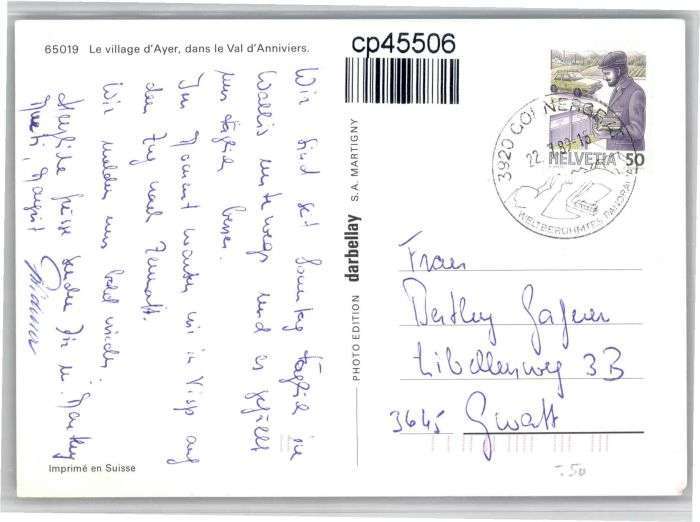 65019 Le village d'Ayer, dans le Val d'Anniviers.
cp45506
HELVETIA 50
3920 GORNERGRAT
22.7.87-10
WELTBERÜHMTES PANORAMA
Wir sind seit Sonntag täglich in
Wallis unterwegs und es gefällt
uns täglich besser.
Im Moment warten wir in Visp auf
den Zug nach Zermatt.
Wir melden uns bald wieder!
Herzliche Grüsse senden Dir
Margrit
PHOTO EDITION darbellay S.A. MARTIGNY
Frau
Berthy
Libellenweg 3B
3645 Gwatt
Imprimé en Suisse
-.50